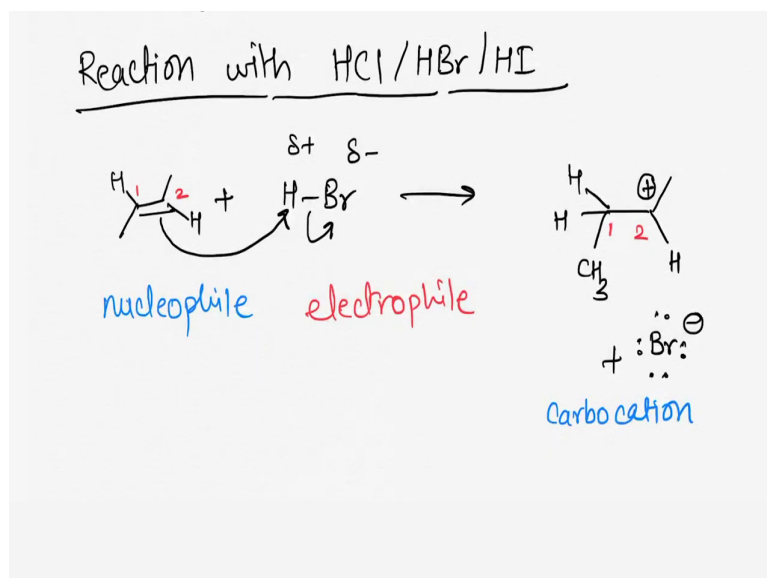 Reaction with HCl/HBr/HI
δ+ δ-
H 1 2 H + H-Br
H H 1 2 ⊕ CH3 H
nucleophile electrophile
+ :Br: ⊖
carbocation